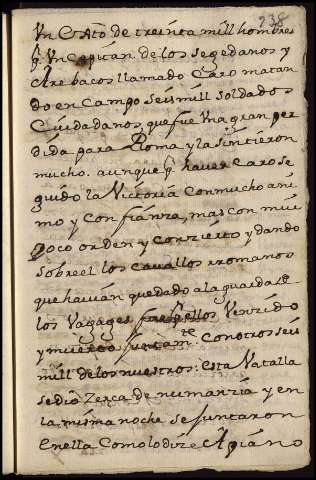 238
Un Exto de treinta mill hombres
q̃ Un Capitan de los segedanos y
Arebacos llamado Caro matan
do en Campo seis mill soldados
Ciudadanos, que fue Una gran per
dida para Roma y la sintieron
mucho. aunque q̃ haver Caro se
guido la Victoria Con mucho ani
mo y Confianza, mas con mui
poco orden y Conzierto y dando
sobre el los Cavallos rromanos
que havian quedado a la guarda de
los Vagages fue Venzido
y muerto Con otros seis
mill de los nuestros: esta Vatalla
se dio Zerca de numanzia y en
la misma noche se Juntaron
en ella Como lo dize Apiano